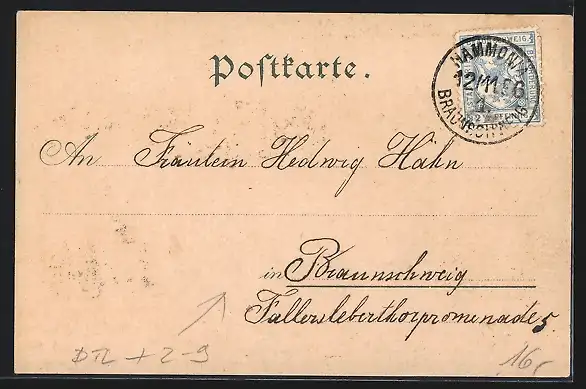 Postkarte.
HAMMONIA
12/11.96
BRAUNSCHWEIG
An Fräulein Hedwig Hahn
in Braunschweig
Fallersleberthorpromenade 5
16,-